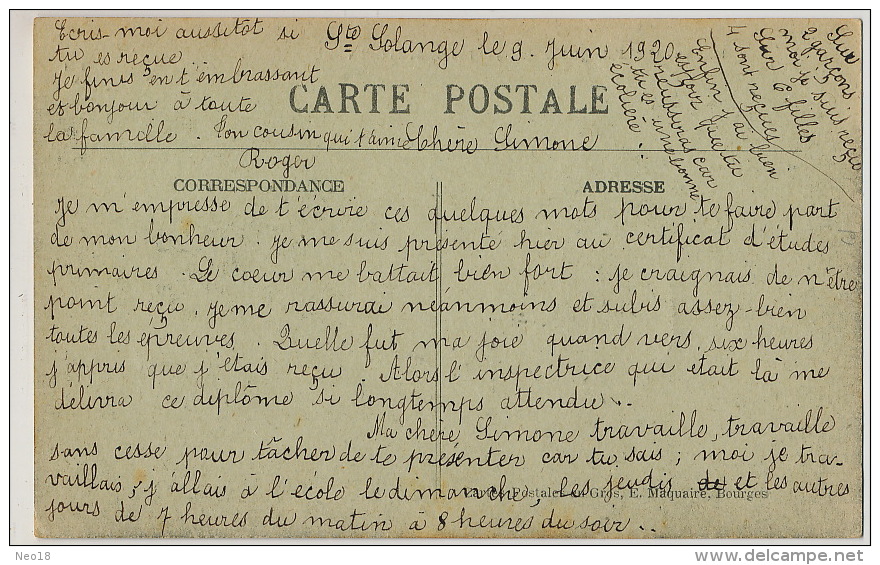 Ste Solange le 9 Juin 1920
CARTE POSTALE
chère Simone
CORRESPONDANCE
ADRESSE
Je m'empresse de t'écrire ces quelques mots pour te faire part
de mon bonheur. Je me suis présenté hier au certificat d'études
primaires. Le coeur me battait bien fort : je craignais de n'être
point reçu. Je me rassurai néanmoins et subis assez-bien
toutes les épreuves. Quelle fut ma joie quand vers six heures
j'appris que j'étais reçu. Alors l'inspectrice qui était là me
délivra ce diplôme si longtemps attendu..
Ma chère Simone travaille, travaille
sans cesse pour tâcher de te présenter car tu sais ; moi je tra-
vaillais, j'allais à l'école le dimanche, les jeudis de et les autres
jours de 7 heures du matin à 8 heures du soir..
Cartes Postales en Gros, E. Maquaire, Bourges
Sur
2 garçons
moi je suis reçu
Sur 6 filles
4 sont reçues
Enfin j'ai bien
espoir que tu
réussiras car
tu es une bonne
écolière.
Ecris-moi aussitôt si
tu es reçue
Je finis en t'embrassant
et bonjour à toute
la famille. Ton cousin qui t'aime
Roger
Neo18
www.delcampe.net